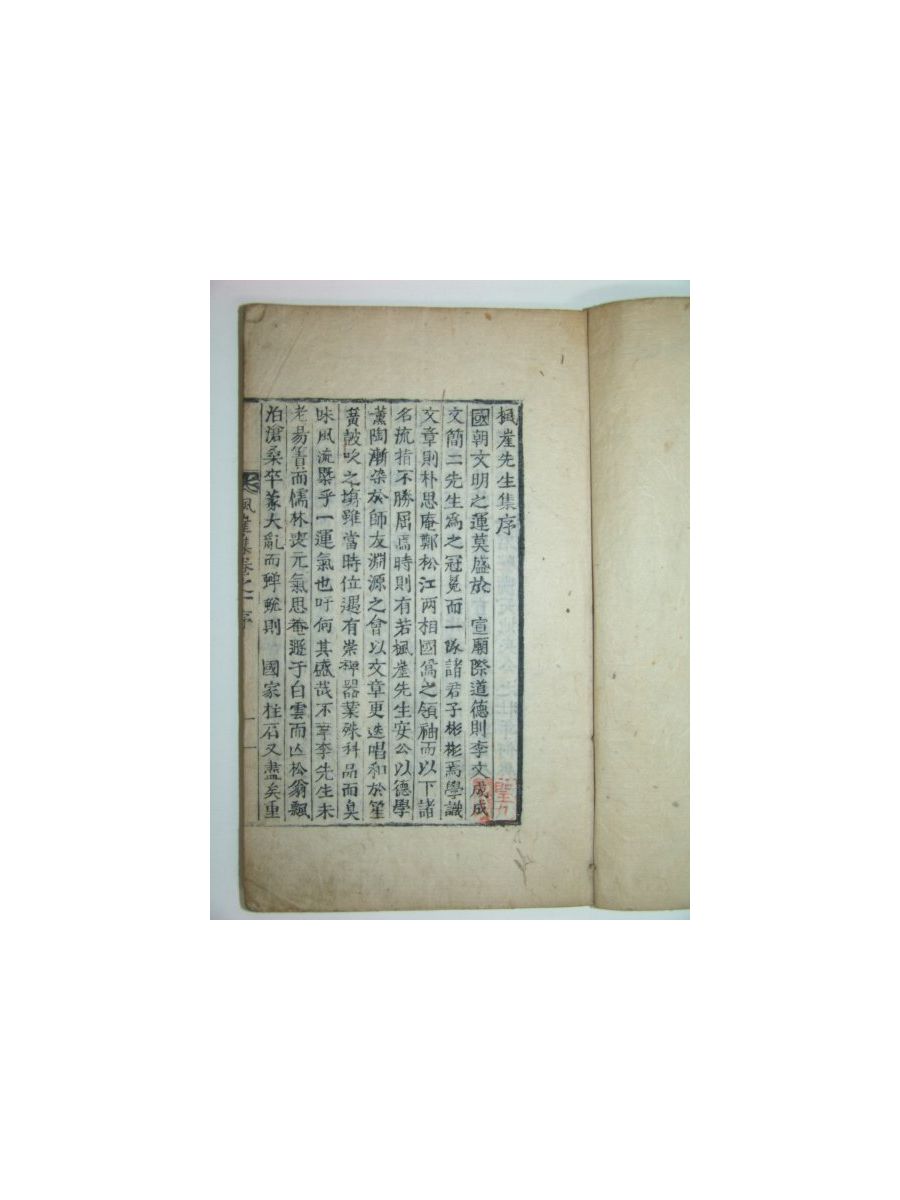 楓崖先生集序
國朝文明之運莫盛於 宣廟際道德則李文成成
文簡二先生爲之冠冕而一隊諸君子彬彬焉學識
文章則朴思庵鄭松江两相國爲之領袖而以下諸
名流指不勝屈焉時則有若楓崖先生安公以德學
薰陶漸染於師友淵源之會以文章更迭唱和於笙
簧皷吹之塲雖當時位遇有崇裨器業殊科品而臭
味風流槩乎一運氣也吁何其盛哉不幸李先生未
老昜簀而儒林喪元氣思菴遯于白雲而亾松翁飄
泊滄桑卒蒙大亂而蟬蛻則 國家柱石又盡矣重
楓崖集卷之一 序 一